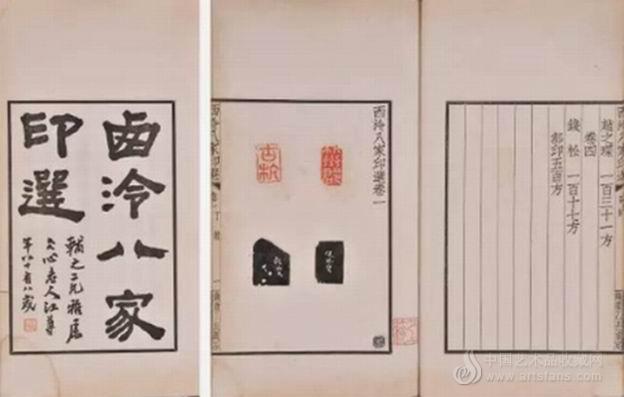 卥泠八家
印選
輔之二兄雅屬
老人江尊
年八十有八歲
西泠八家印選卷一
古杭
趙之琛 一百三十一方
卷四
錢松 一百十七方
都印五百方
中国艺术品收藏网
www.artsfans.com